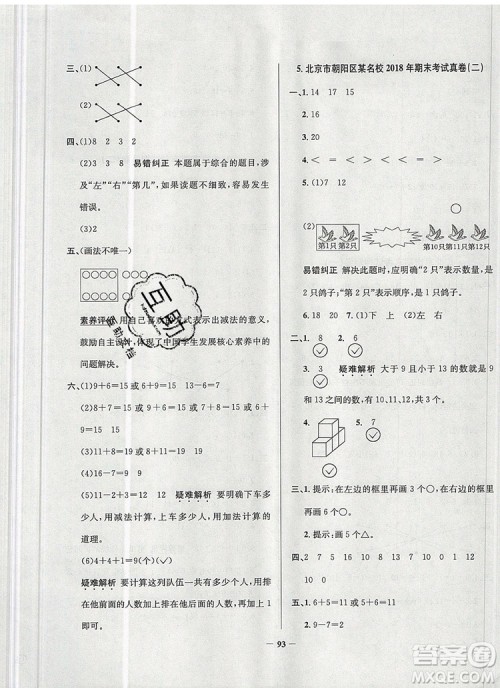 三、(1)
(2)
四、(1)8 2 3 2
(2)3 3 8 8 易错纠正 本题属于综合的题目，涉
及“左”“右”“第几”，如果读题不细致，容易发生
错误。
(3)2
五、(画法不唯一)
素养评价 用自己喜欢的方式表示出减法的意义，
鼓励自主设计，体现了中国学生发展核心素养中的
问题解决。
六、(1)9+4=13 13-6=7
(2)7+8=15或8+7=15或9+6=15或6+
9=15
(3)11+8=19或8+11=19
(4)12-2=10
(5)18-7=11 疑难解析 要明确下车多
少人，用减法计算，上车多少人，用加法计算的
道理。
(6)4+4+1=9(人)
疑难解析 要计算这列队伍一共多少个人，用
排在他前面的人数和排在他后面的人数，再加
上1。
5.北京市朝阳区某名校2018年期末考试真卷(二)
一、1. 14 17 15
2. 16 20
4. < = < > < <
5. (1)7 1 8
(2)
第1只 第2只
第10只 第11只 第12只
易错纠正 解决此题时，应明确“2只”表示数量，是
2只鸽子；“第2只”表示顺序，是1只鸽子。
6. (1)上 下 (2)左 右
二、1. 8 2.
3. 疑难解析 大于9且小于13的数就是9
和13之间的数，有10、11、12，共3个。
4. 5.
三、1. 提示：在左边的框里再画3个○，在右边的框里
再画6个○。
2. 提示：再画5个△。
四、2 7 5 10 12 10 16 8 13
五、1. 6+5=11或5+6=11
2. 9-7=2
93
互助
作业帮助文档
答案圈
MXQE.COM